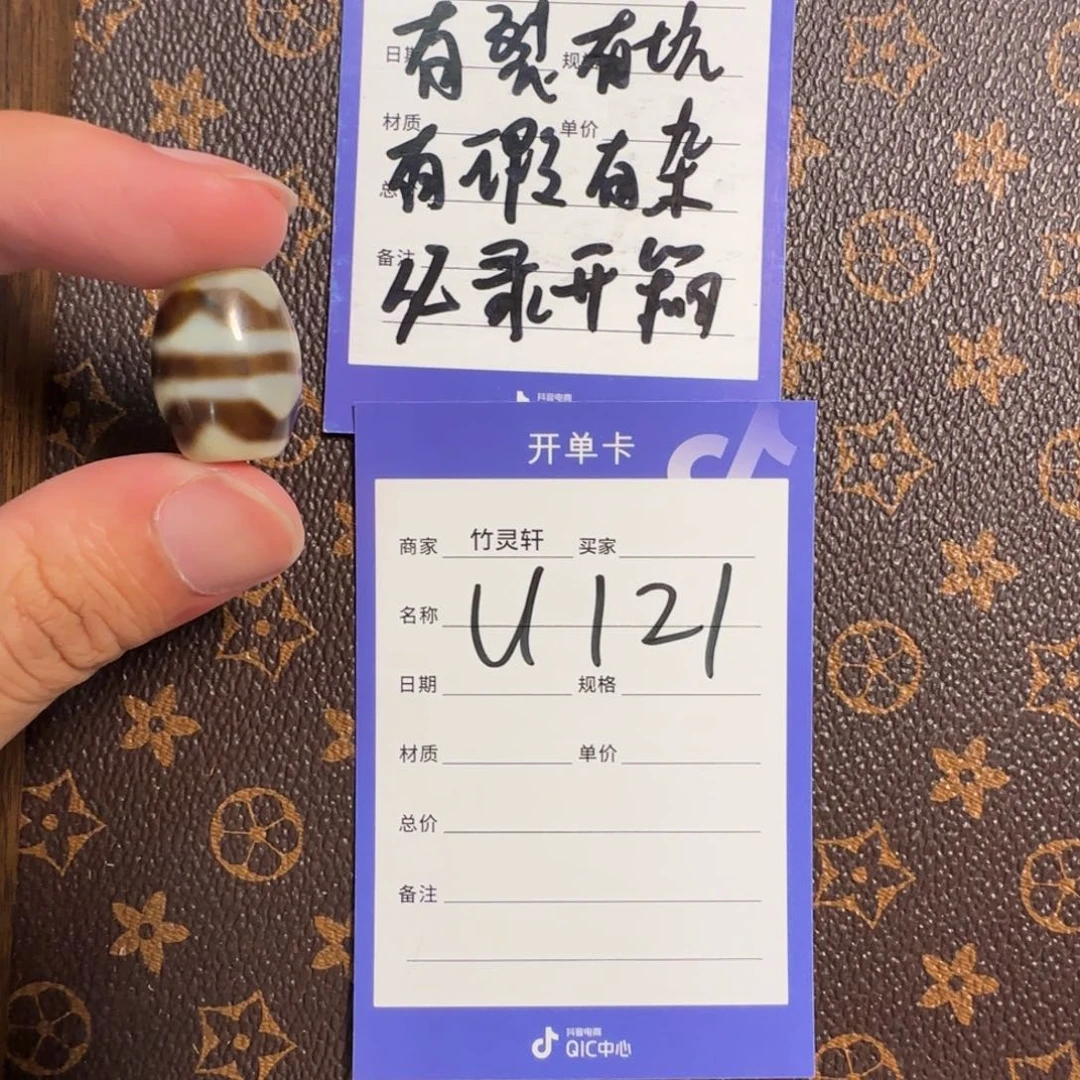 有裂有坑
日期 规格
材质 单价
有瑕有杂
总价
备注
必录开箱
抖音电商
开单卡
商家 竹灵轩 买家
名称 U121
日期 规格
材质 单价
总价
备注
抖音电商
QIC中心